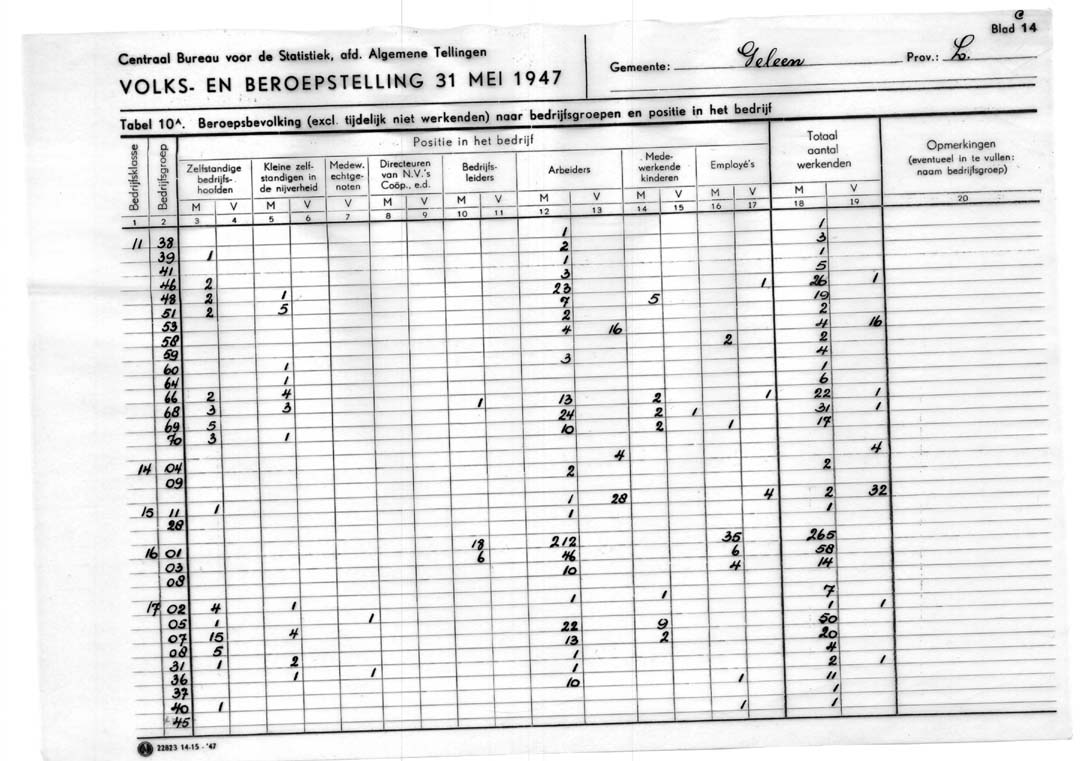 C
Blad 14
Centraal Bureau voor de Statistiek, afd. Algemene Tellingen
VOLKS- EN BEROEPSTELLING 31 MEI 1947
Gemeente: Geleen Prov.: L.
Tabel 10A. Beroepsbevolking (excl. tijdelijk niet werkenden) naar bedrijfsgroepen en positie in het bedrijf
Bedrijfsklasse
Bedrijfsgroep
Positie in het bedrijf
Zelfstandige bedrijfs-hoofden
Kleine zelf-standigen in de nijverheid
Medew. echtge-noten
Directeuren van N.V.'s Coöp., e.d.
Bedrijfs-leiders
Arbeiders
Mede-werkende kinderen
Employé's
Totaal aantal werkenden
Opmerkingen (eventueel in te vullen: naam bedrijfsgroep)
M V M V V M V M V M V M V M V M V
1 2 3 4 5 6 7 8 9 10 11 12 13 14 15 16 17 18 19 20
11 38 1 1
39 1 2 3
41 1 1
46 2 3 5
48 2 1 23 1 26 1
51 2 5 7 5 19
53 2 2
58 4 16 4 16
59 2 2
60 1 3 4
64 1 1
66 2 4 6
68 3 3 1 13 2 1 22 1
69 5 24 2 1 31 1
70 3 1 10 2 1 17
14 04 4 4
09 2 2
15 11 1 1 28 4 2 32
28 1 1
16 01 18 212 35 265
03 6 46 6 58
08 10 4 14
17 02 4 1 1 1 7
05 1 1 1 1
07 15 4 22 9 50
08 5 13 2 20
31 1 2 1 4
36 1 1 1 2 1
37 10 1 11
40 1 1
45 1 1
22823 14-15 - '47